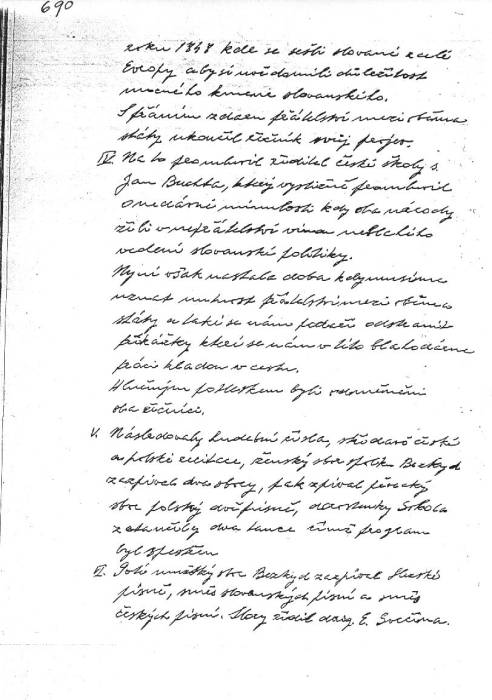 690
roku 1848 kde se sešli slované z celé
Evropy aby si uvědomili důležitost
mocného kmene slovanského.
S přáním zdaru přátelství mezi oběma
státy ukončil řečník svůj projev.
IV. Na to promluvil ředitel české školy s.
Jan Buchta, který vystižně promluvil
o nedávné minulosti kdy oba národy
žili v nepřátelství vinou neblahého
vedení slovanské politiky.
Nyní však nastala doba kdy musíme
uznat nutnost přátelství mezi oběma
státy a také se nám podaří odstranit
překážky které se nám v této blahodárné
práci kladou v cestu.
Hlučným potleskem byli odměněni
oba řečníci.
V. Následovaly hudební čísla, české
a polské recitace, ženský sbor spolk. Beskyd
zazpíval dva sbory, pak zpíval pěvecký
sbor polský dvě písně, dorostenky Sokola
zatančily dva tance čímž program
byl zpestřen
VI. Poté mužský sbor Beskyd zazpíval Slezské
písně, směs slovanských písní a směs
českých písní. Sbory řídil E. Svěčina.